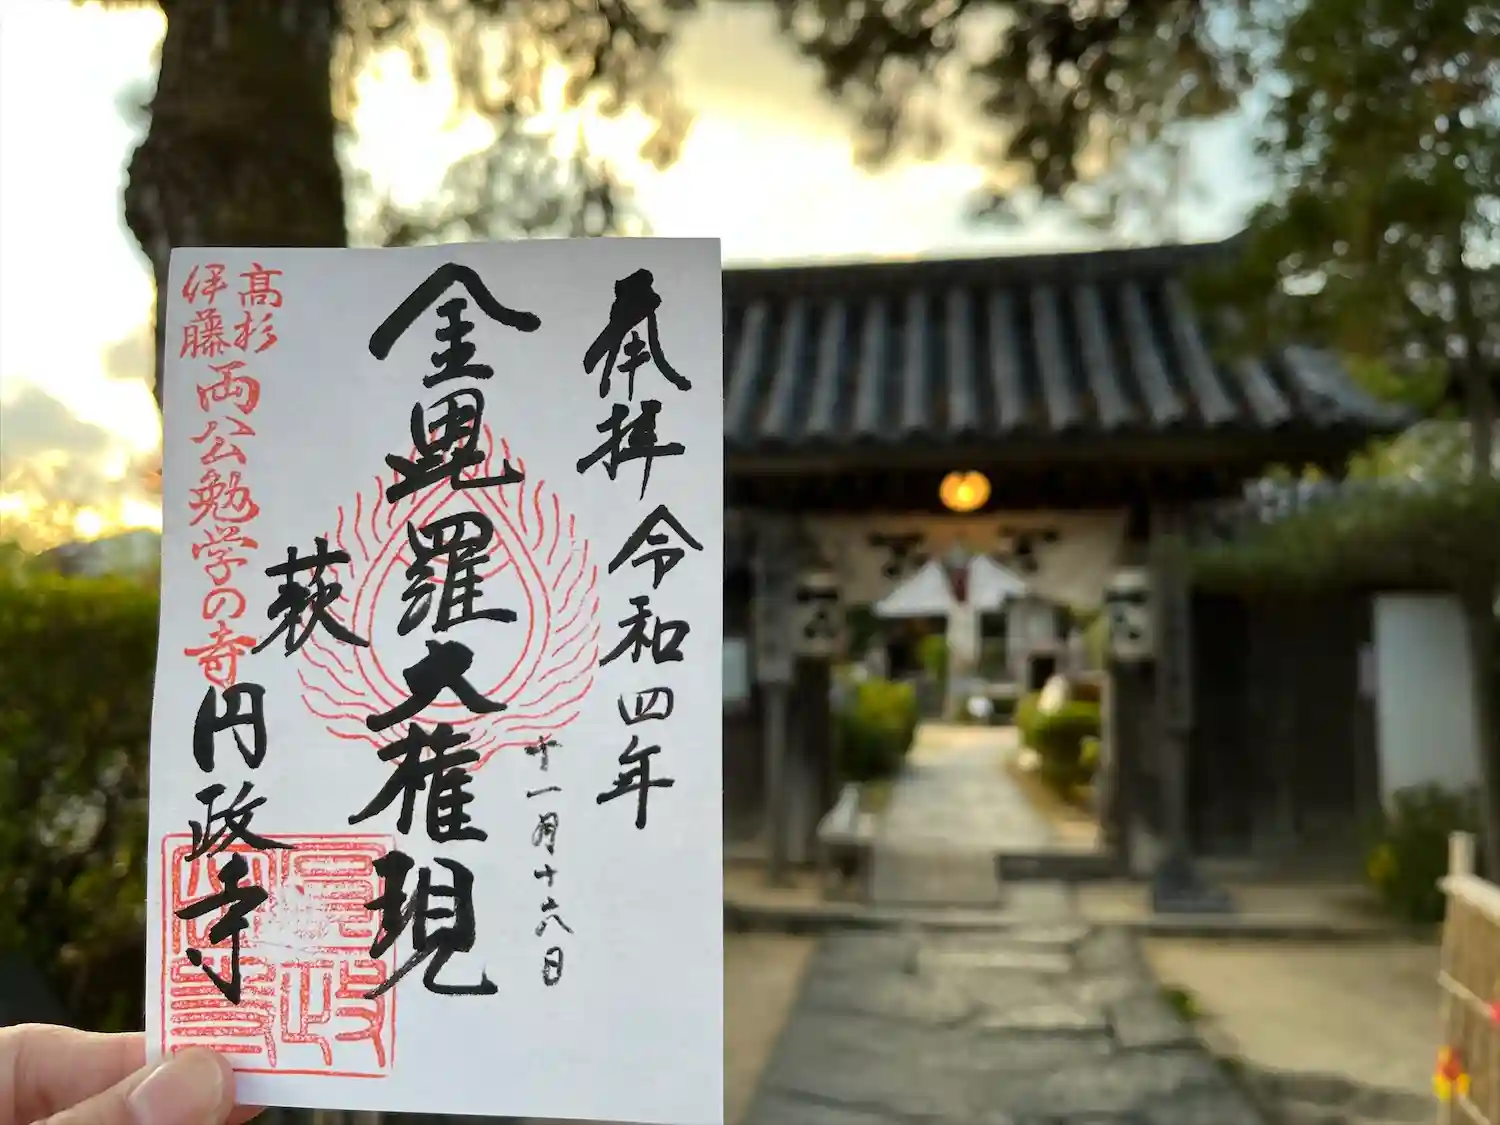 奉拝 令和四年
十一月十六日
金毘羅大権現
萩 円政寺
高杉
伊藤
両公勉学の寺